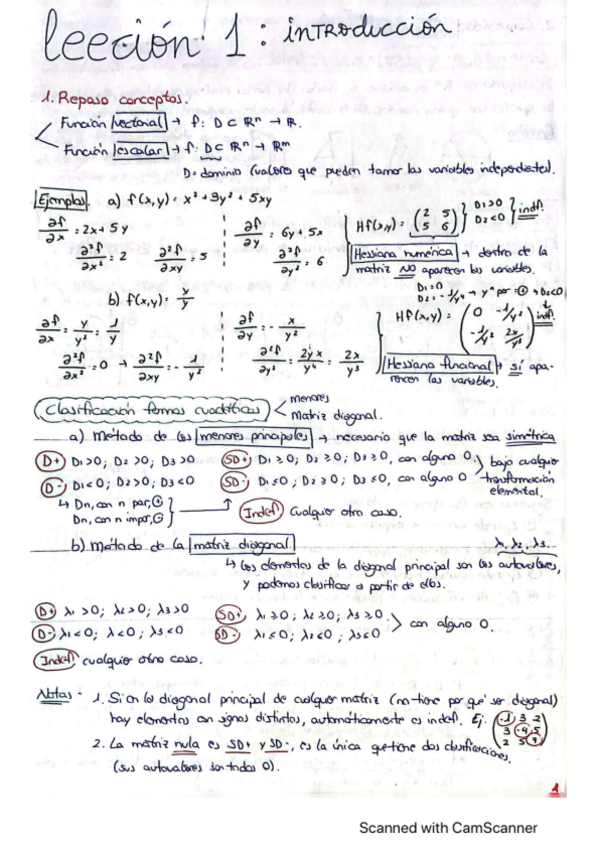 lección 1: introducción
1. Repaso conceptos.
Función vectorial → f: D ⊂ ℝⁿ → ℝ.
Función escalar → f: D ⊂ ℝⁿ → ℝᵐ
D = dominio (valores que pueden tomar las variables independientes).
Ejemplos a) f(x,y) = x² + 3y² + 5xy
∂f/∂x = 2x + 5y ∂f/∂y = 6y + 5x Hf(x,y) = (2 5 / 5 6) D1>0 D2<0 } indf.
∂²f/∂x² = 2 ∂²f/∂xy = 5 ∂²f/∂y² = 6 Hessiana numérica → dentro de la
matriz NO aparecen las variables.
b) f(x,y) = x/y D1=0
D2 = -1/y⁴ → yⁿ par = ⊕ → D2<0
∂f/∂x = y/y² = 1/y ∂f/∂y = -x/y² Hf(x,y) = (0 -1/y² / -1/y² 2x/y³) indf.
∂²f/∂x² = 0 → ∂²f/∂xy = -1/y² ∂²f/∂y² = 2yx/y⁴ = 2x/y³ Hessiana funcional → sí apa-
recen las variables.
Clasificación formas cuadráticas < menores
Matriz diagonal.
a) Método de los menores principales → necesario que la matriz sea simétrica
D+ D1>0; D2>0; D3>0 SD+ D1≥0; D2≥0; D3≥0, con alguno 0. bajo cualquier
D- D1<0; D2>0; D3<0 SD- D1≤0; D2≥0; D3≤0, con alguno 0 transformación
elemental.
↳ Dn, con n par, ⊕
Dn, con n impar, ⊖ → Indef. Cualquier otro caso.
b) Método de la matriz diagonal λ1, λ2, λ3.
↳ Los elementos de la diagonal principal son los autovalores,
y podemos clasificar a partir de ellos.
D+ λ1>0; λ2>0; λ3>0 SD+ λ1≥0; λ2≥0; λ3≥0.
D- λ1<0; λ<0; λ3<0 SD- λ1≤0; λ2≤0; λ3≤0 > con alguno 0.
Indef. cualquier otro caso.
Notas - 1. Si en la diagonal principal de cualquier matriz (no tiene por qué ser diagonal)
hay elementos con signos distintos, automáticamente es indef. Ej: (-1 3 2 / 3 -4 5 / 2 5 9)
2. La matriz nula es SD+ y SD-, es la única que tiene dos clasificaciones.
(sus autovalores son todos 0).
1
Scanned with CamScanner